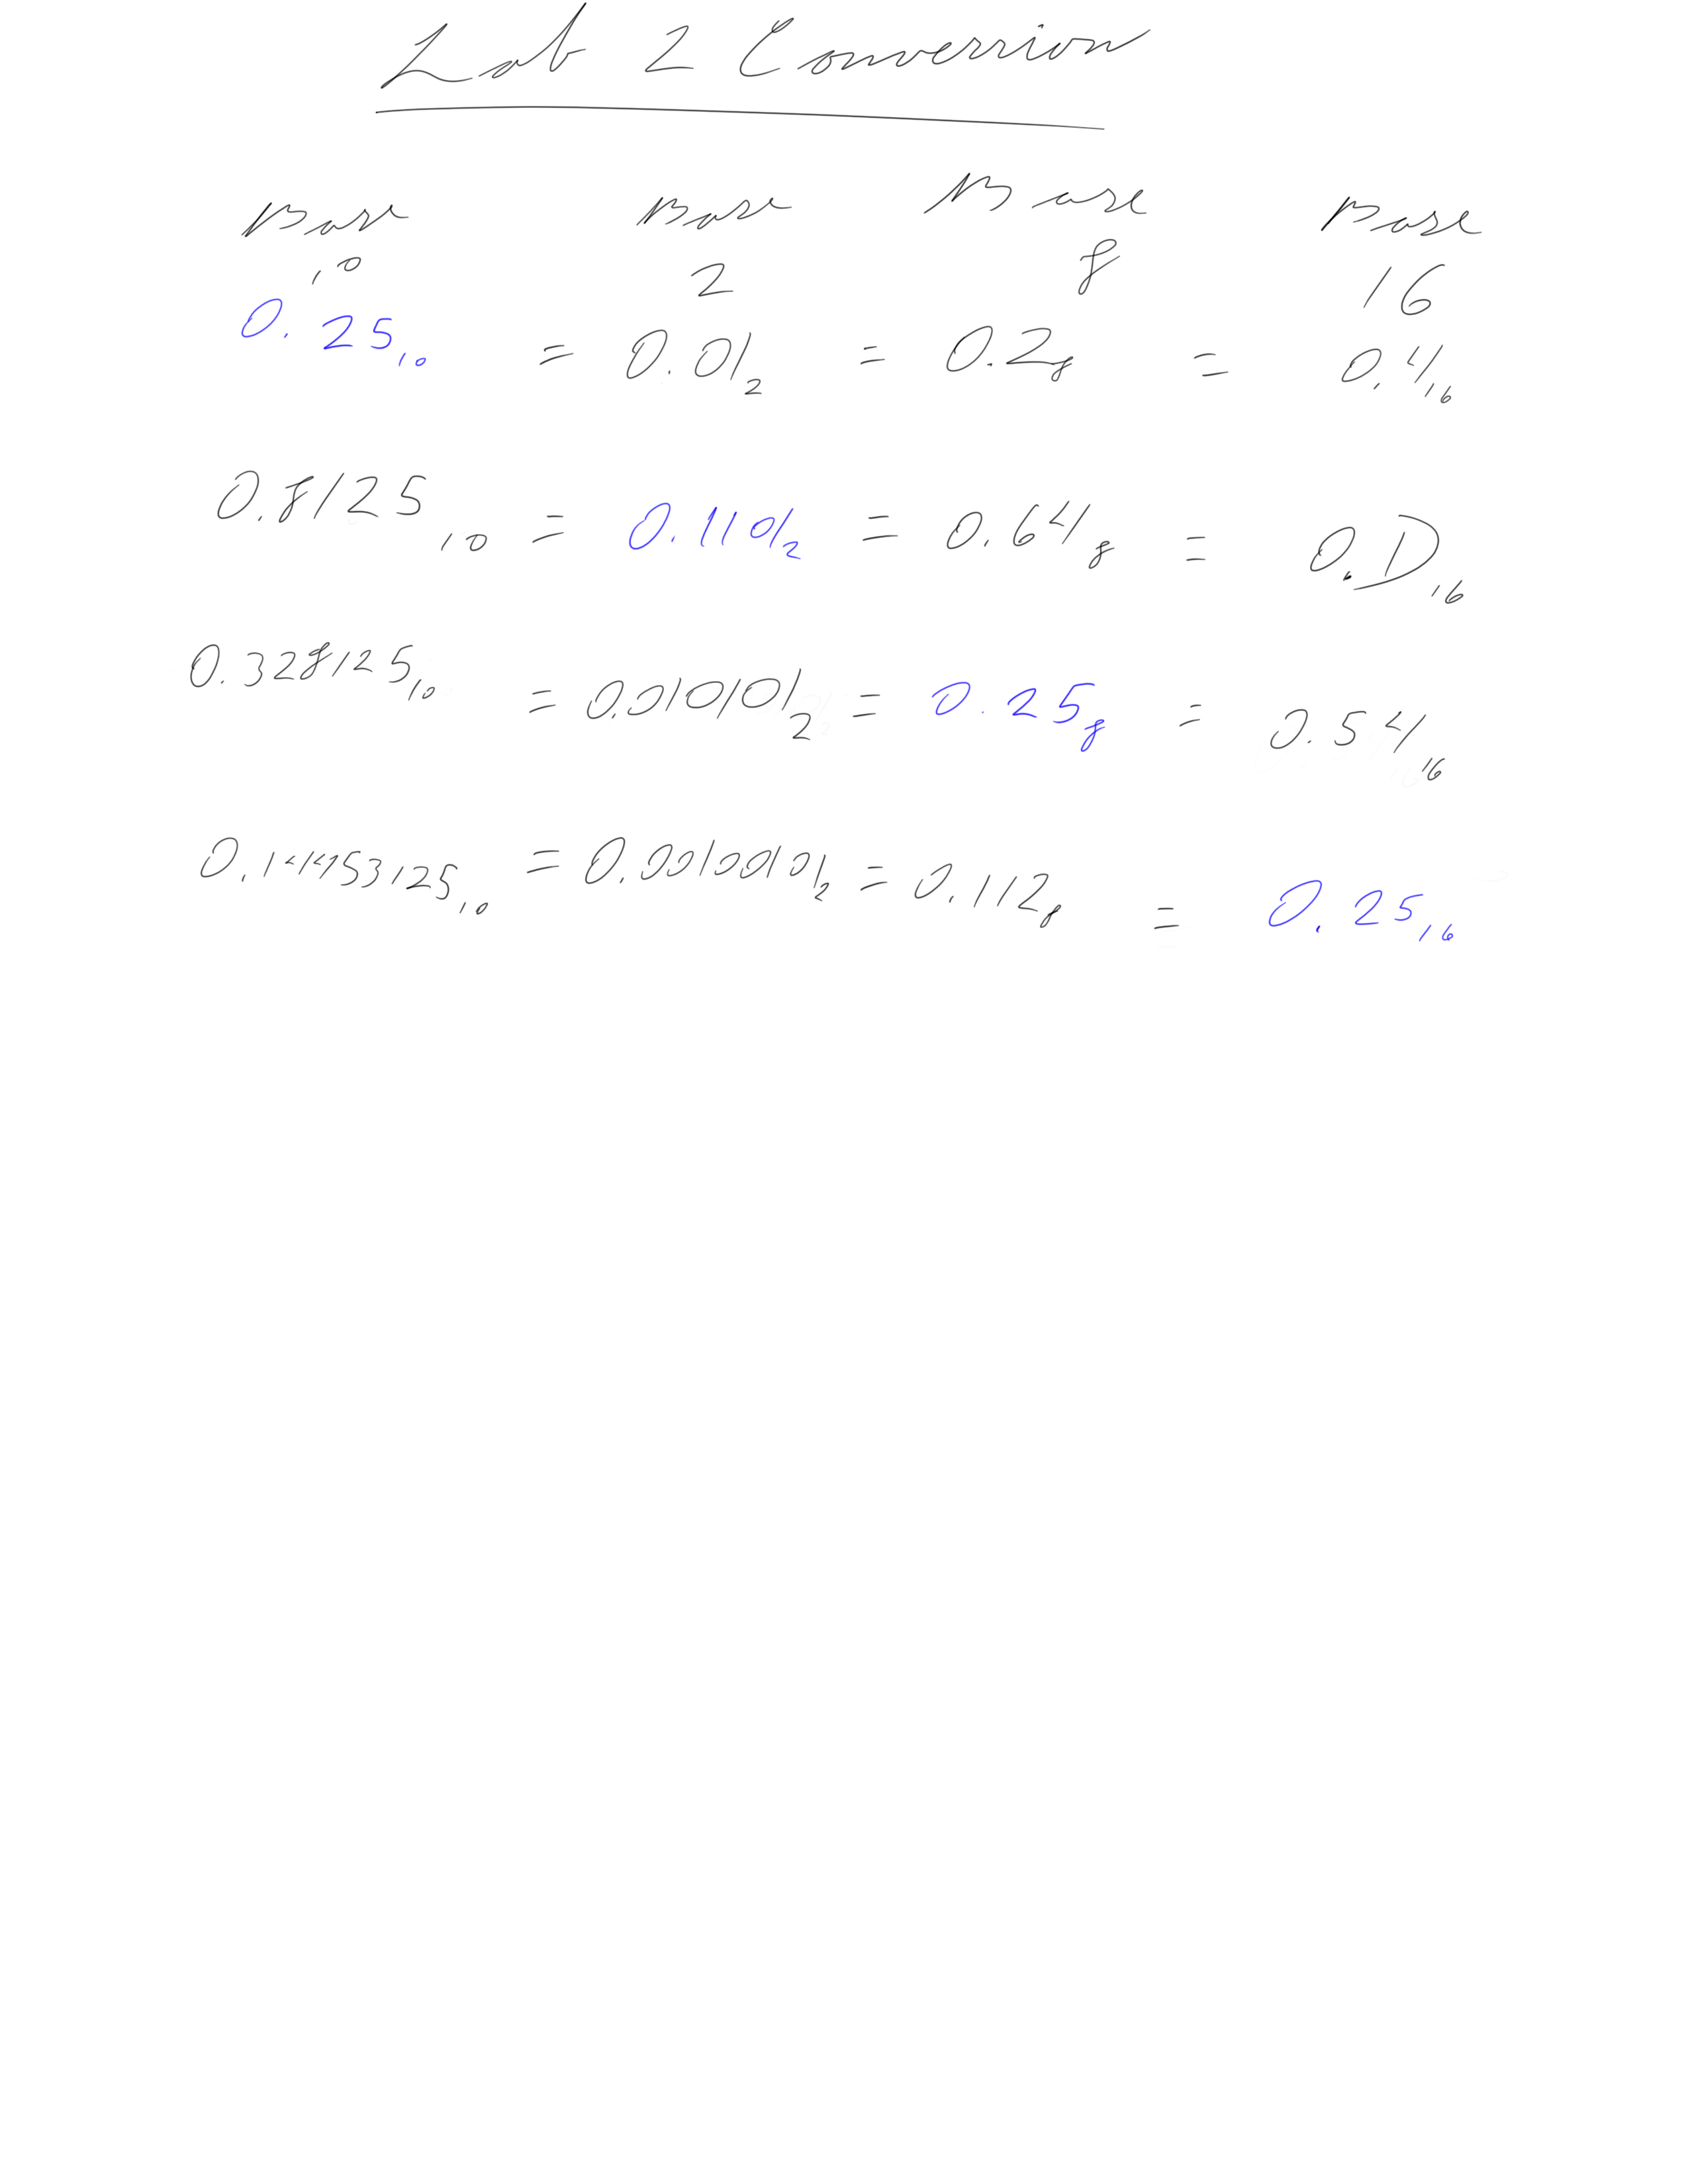 Lab 2 Conversion
Base Base Base Base
10 2 8 16
0.25₁₀ = 0.01₂ = 0.2₈ = 0.4₁₆
0.8125₁₀ = 0.1101₂ = 0.64₈ = 0.D₁₆
0.328125₁₀ = 0.010101₂ = 0.25₈ = 0.54₁₆
0.14453125₁₀ = 0.00100101₂ = 0.112₈ = 0.25₁₆